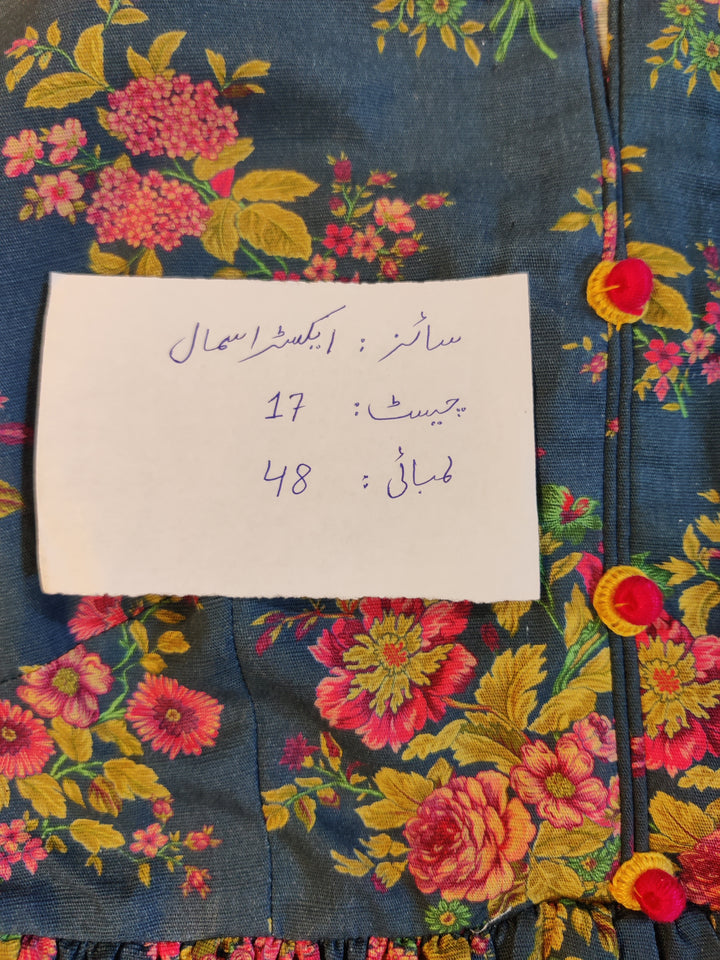 سائز: ایکسٹرا سمال
چیسٹ: 17
لمبائی: 48